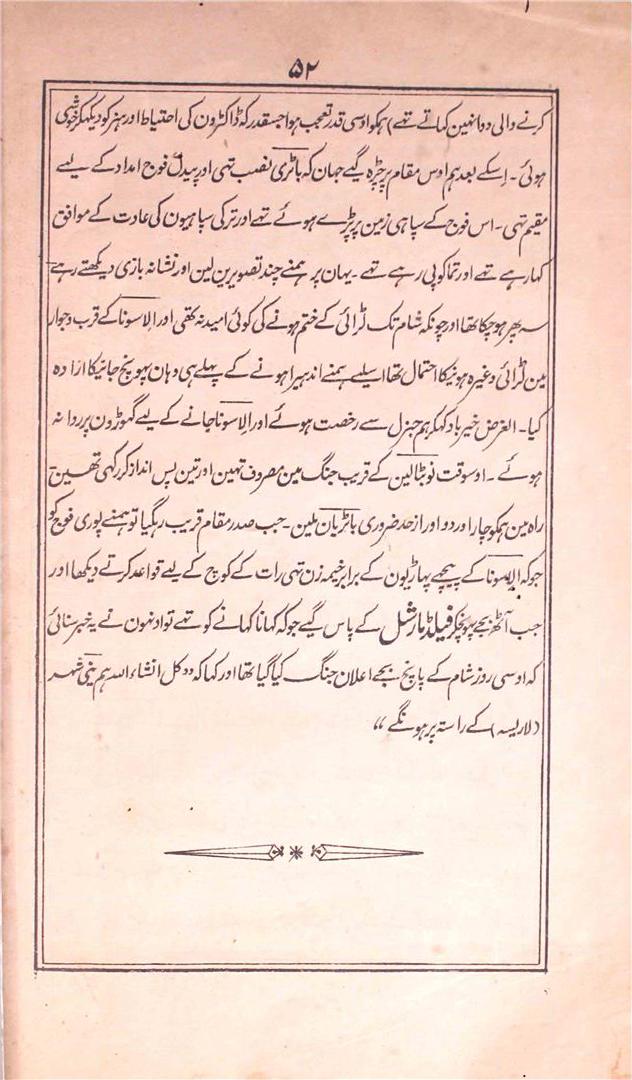 ۵۲
کرنے والی دوا نہین کہاتے تہے) ہمکو اوسی قدر تعجب ہوا جسقدر کہ ڈاکٹرون کی احتیاط اور ہنر کو دیکہکر خوشی
ہوئی۔ اِسکے بعد ہم اوس مقام پر چڑہ گیے جہان کہ باٹری نصب تہی اور پیدل فوج امداد کے لیے
مقیم تہی۔ اس فوج کے سپاہی زمین پر پڑے ہوئے تہے اور ترکی سپاہیون کی عادت کے موافق
کہا رہے تہے اور تماکو پی رہے تہے۔ یہان پر ہمنے چند تصویرین لین اور نشانہ بازی دیکہتے رہے
سہ پہر ہو چکا تہا اور چونکہ شام تک لڑائی کے ختم ہونے کی کوئی امید نہ تہی اور الاسونا کے قرب و جوار
مین لڑائی وغیرہ ہونیکا احتمال تہا اسلیے ہمنے اندہیرا ہونے کے پہلے ہی وہان پہونچ جانیکا ارادہ
کیا۔ الغرض خیرباد کہکر ہم جنرل سے رخصت ہوئے اور الاسونا جانے کے لیے گہوڑون پر روانہ
ہوئے۔ اوسوقت نو بٹالین کے قریب جنگ مین مصروف تہین اور تین پس انداز کر رکہی تہین
راہ مین ہمکو چار اور دو اور ازحد ضروری باٹریان ملین۔ جب صدر مقام قریب رہگیا تو ہمنے پوری فوج کو
جو کہ الاسونا کے پیچہے پہاڑیون کے برابر خیمہ زن تہی رات کے کوچ کے لیے قواعد کرتے دیکہا اور
جب آٹھ بجے پہونچکر فیلڈ مارشل کے پاس گیے جو کہ کہانا کہانے کو تہے تو اونہون نے یہ خبر سنائی
کہ اوسی روز شام کے پانچ بجے اعلان جنگ کیا گیا تہا اور کہا کہ ’’ کل انشاء اللہ ہم ینی شہر
(لاریسہ) کے راستہ پر ہونگے ‘‘